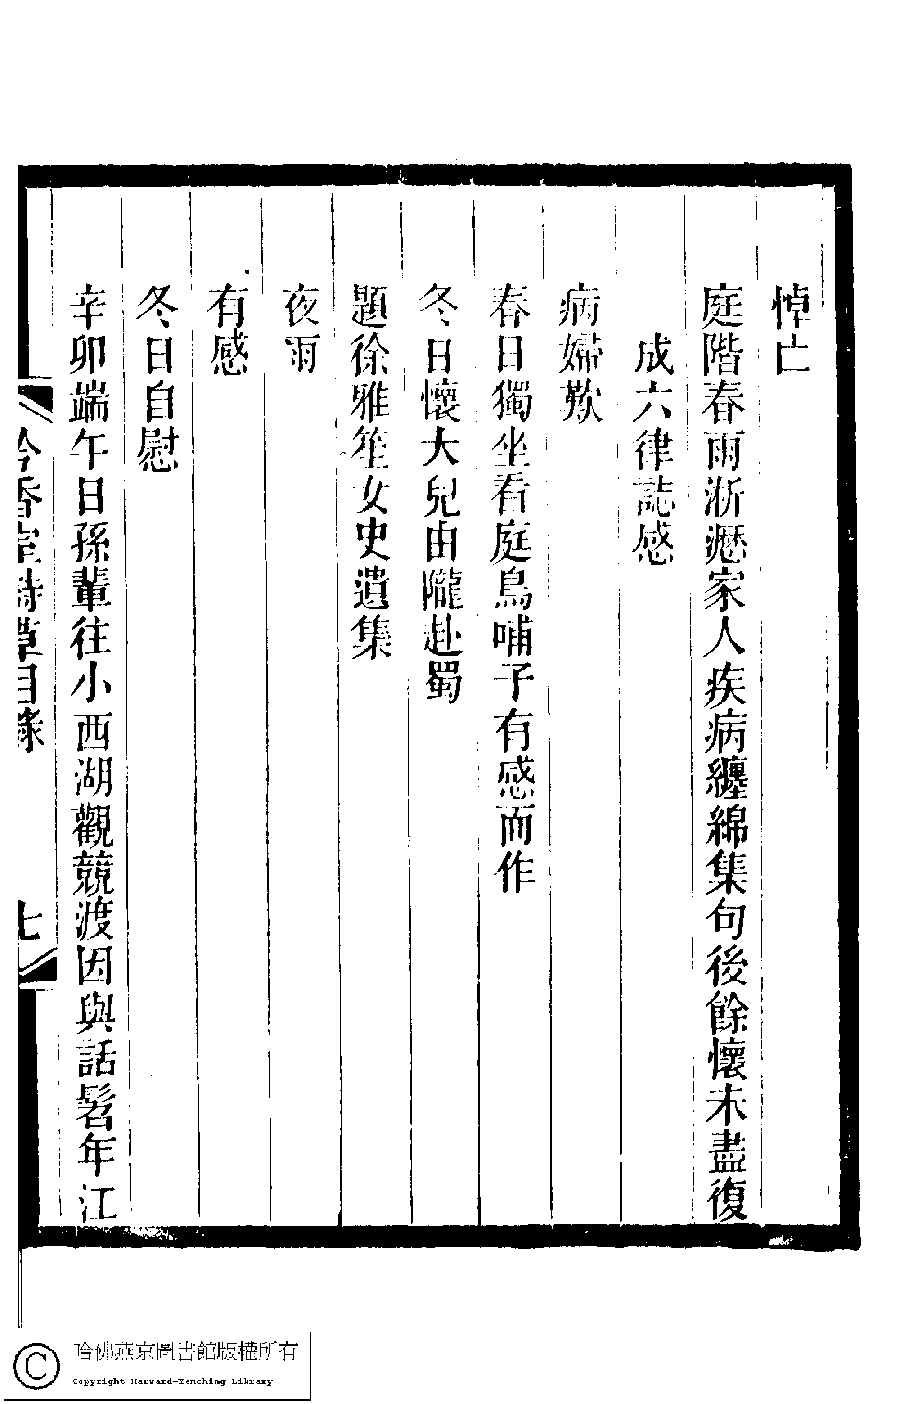 悼亡
庭階春雨淅瀝家人疾病纏綿集句後餘懷未盡復
成六律誌感
病婦歎
春日獨坐看庭鳥哺子有感而作
冬日懷大兒由隴赴蜀
題徐雅笙女史遺集
夜雨
有感
冬日自慰
辛卯端午日孫輩往小西湖觀競渡因與話髫年江
香室詩草目錄
七
哈佛燕京圖書館版權所有
Copyright Harvard-Yenching Library